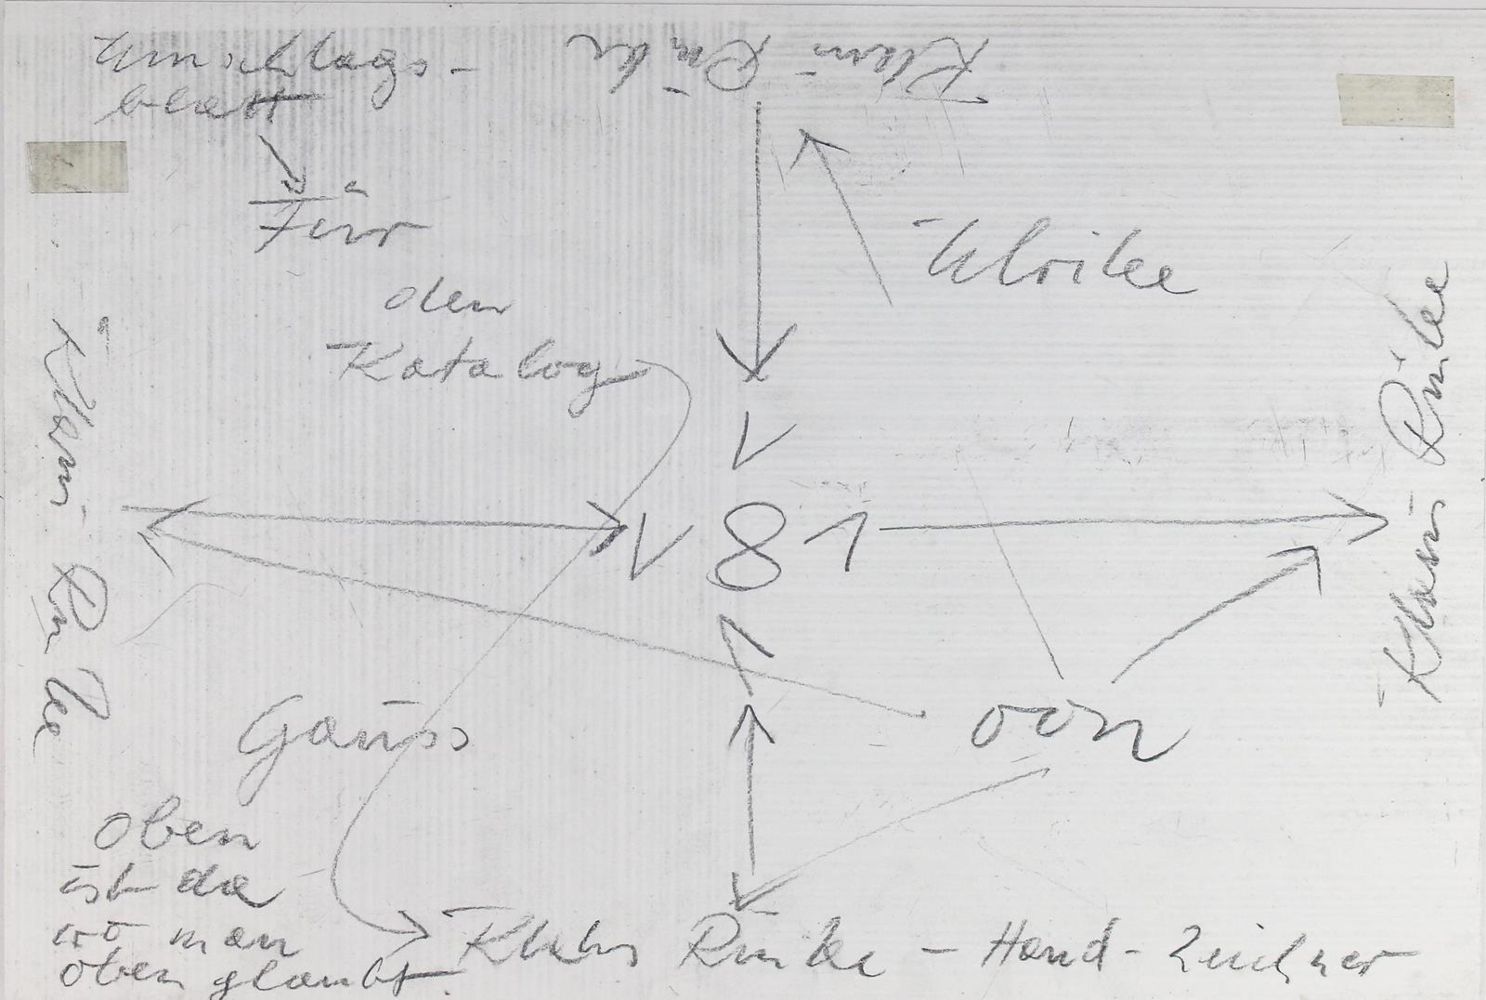 Umschlags-
blatt
Klaus Rinke
Für
den
Katalog
Ulrike
Klaus Rinke
Klaus Rinke
V
V 8 1
1
Gauss
von
oben
ist da
wo man
oben glaubt.
Klaus Rinke – Hand-Zeichner